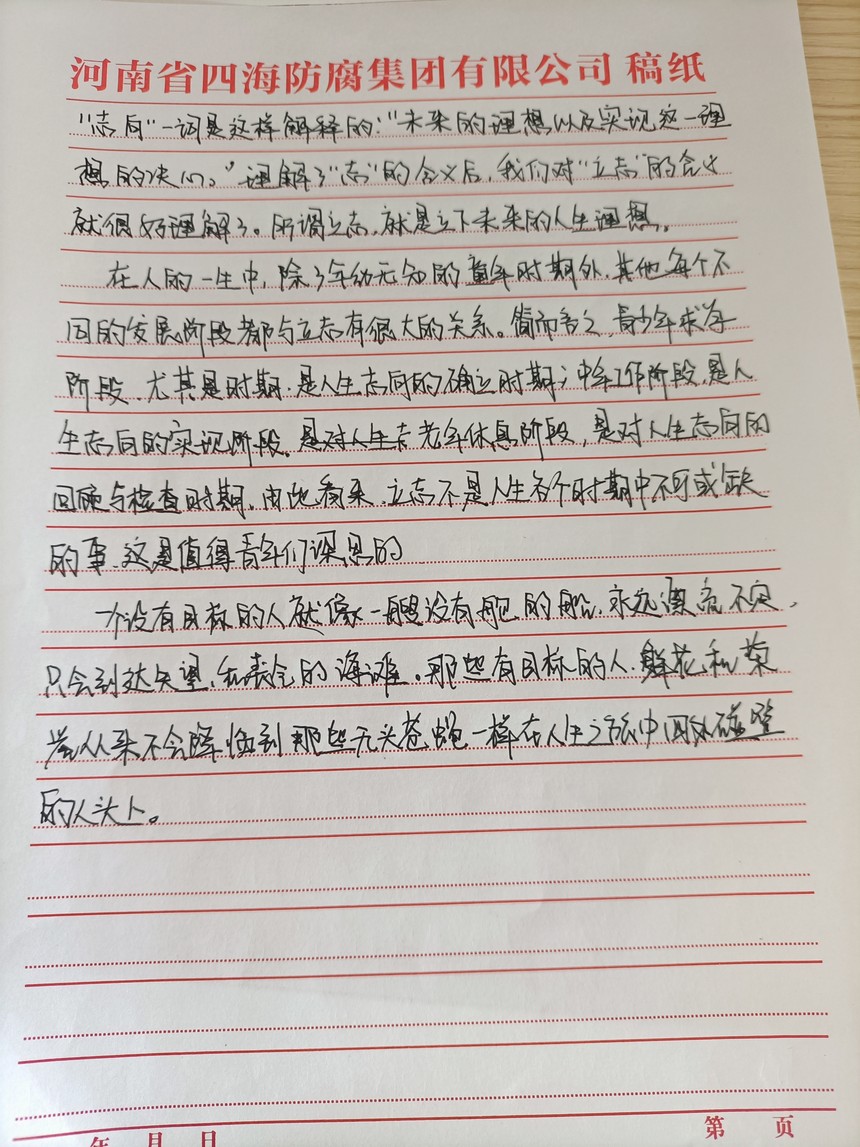 河南省四海防腐集团有限公司 稿纸
"志向"一词是这样解释的："未来的理想以及实现这一理
想的决心。"理解了"志"的含义后，我们对"立志"的含义
就很好理解了。所谓立志，就是立下未来的人生理想。
在人的一生中，除了年幼无知的童年时期外，其他每个不
同的发展阶段都与立志有很大的关系。简而言之，青少年求学
阶段、尤其是时期，是人生志向的确立时期；中年工作阶段，是人
生志向的实现阶段。是对人生志老年休息阶段，是对人生志向的
回顾与检查时期。由此看来，立志不是人生各个时期中不可或缺
的事，这是值得青年们深思的
一个没有目标的人就像一艘没有舵的船，永远漂流不定，
只会到达失望、和丧气的海滩。那些有目标的人，鲜花和荣
誉从来不会降临到那些无头苍蝇一样在人生之旅中四处碰壁
的人头上。
年 月 日
第 页